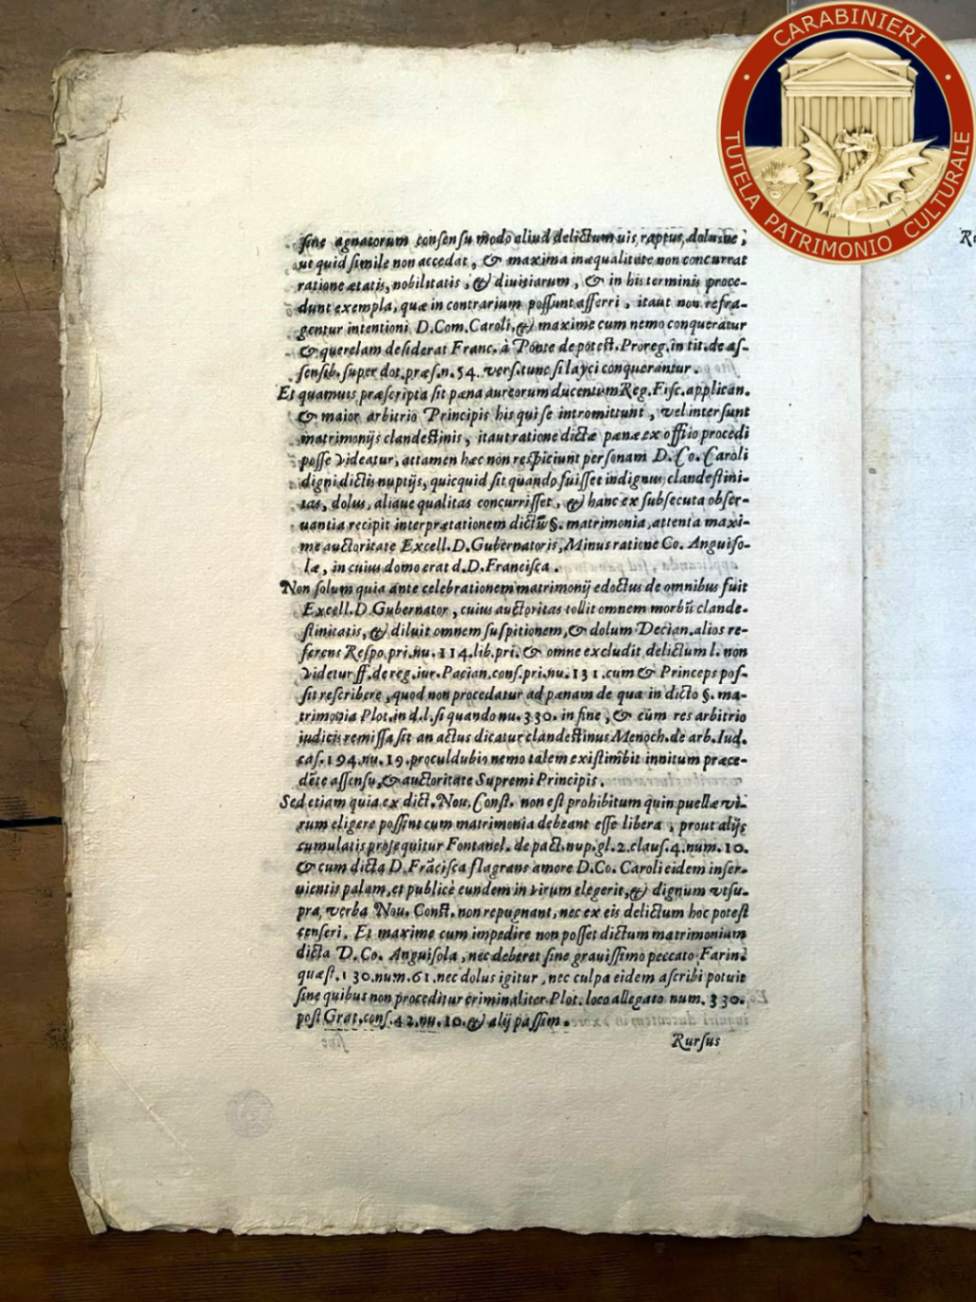 CARABINIERI
TUTELA PATRIMONIO CULTURALE
sine agnatorum consensu modo aliud delictum uis, raptus, dolusue,
ut quid simile non accedat, & maxima inæqualitate non concurrat
ratione ætatis, nobilitatis, & diuitiarum, & in his terminis proce-
dunt exempla, quæ in contrarium possunt afferri, itaut non refra-
gentur intentioni D.Com.Caroli, & maxime cum nemo conqueratur
& querelam desiderat Franc. à Ponte de potest. Proreg. in tit. de as-
sensib. super dot. præs. n. 54. vers. tunc si layci conquerantur.
Et quamuis præscripta sit pæna aureorum ducentum Reg. Fisc. applican.
& maior arbitrio Principis his qui se intromittunt, vel intersunt
matrimonijs clandestinis, itaut ratione dictæ pænæ ex offitio procedi
posse videatur, attamen hæc non respiciunt personam D. Co. Caroli
digni dictis nuptijs, quicquid sit quando fuisset indignus, clandestini-
tas, dolus, aliaue qualitas concurrisset, & hanc ex subsecuta obser-
uantia recipit interprætationem dictū §. matrimonia, attenta maxi-
me auctoritate Excell. D. Gubernatoris, Minus ratione Co. Anguiso-
læ, in cuius domo erat d. D. Francisca.
Non solum quia ante celebrationem matrimonij edoctus de omnibus fuit
Excell. D Gubernator, cuius auctoritas tollit omnem morbū clande-
stinitatis, & diluit omnem suspitionem, & dolum Decian. alios re-
ferens Respo. pri. nu. 114. lib. pri. & omne excludit delictum l. non
videtur ff. de reg. iur. Pacian. cons. pri. nu. 131. cum & Princeps pos-
sit rescribere, quod non procedatur ad pænam de qua in dicto §. ma-
trimonia Plot. in d. l. si quando nu. 330. in fine, & cùm res arbitrio
iudicis remissa sit an actus dicatur clandestinus Menoch. de arb. Iud.
cas. 194. nu. 19. proculdubio nemo talem existimbit innitum præce-
dēte assensu, & auctoritate Supremi Principis.
Sed etiam quia ex dict. Nou. Const. non est prohibitum quin puellæ vi-
rum eligere possint cum matrimonia debeant esse libera, prout alijs
cumulatis prosequitur Fontanel. de pact. nup. gl. 2. claus. 4. num. 10.
& cum dicta D. Frācisca flagrans amore D. Co. Caroli eidem inser-
uientis palam, et publicè eundem in virum elegerit, & dignum vt su-
pra, verba Nou. Const. non repugnant, nec ex eis delictum hoc potest
censeri. Et maxime cum impedire non posset dictum matrimonium
dicta D. Co. Anguisola, nec deberet sine grauissimo peccato Farin.
quæst. 130. num. 61. nec dolus igitur, nec culpa eidem ascribi potuit
sine quibus non proceditur criminaliter Plot. loco allegato num. 330.
post Grat. cons. 42. nu. 10. & alij passim.
Rursus